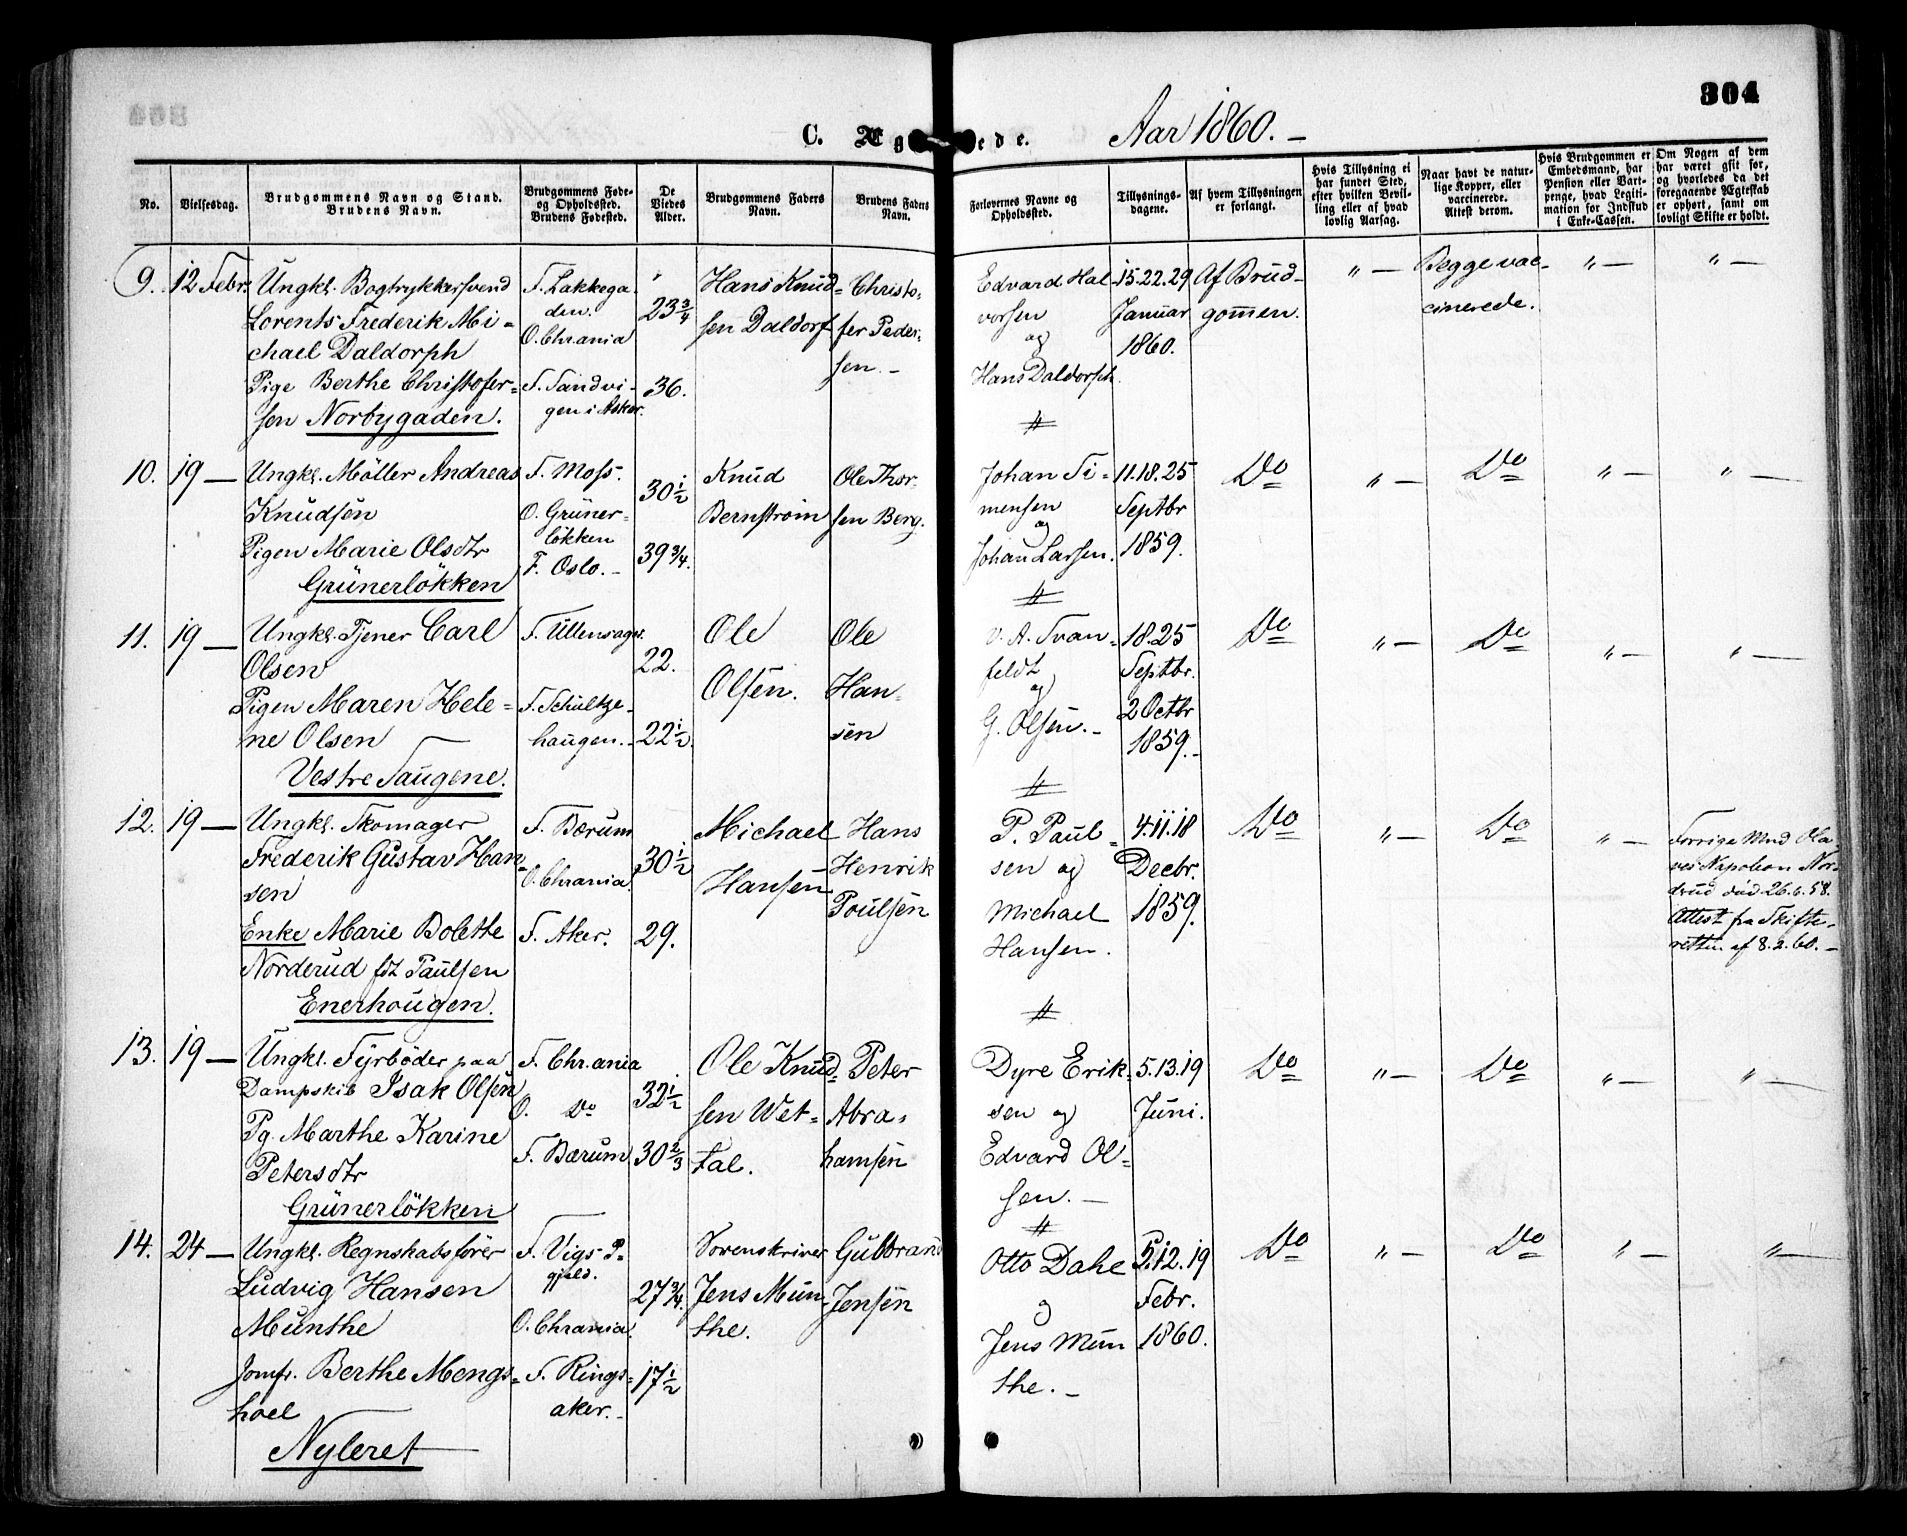 304
C. Ægteviede.
Aar 1860.
No.
Vielsesdag.
Brudgommens Navn og Stand.
Brudens Navn.
Brudgommens Føde- og Opholdssted.
Brudens Fødested.
De Viedes Alder.
Brudgommens Faders Navn.
Brudens Faders Navn.
Forlovernes Navne og Opholdssted.
Tillysnings-dagene.
Af hvem Tillysningen er forlangt.
Hvis Tillysning ei har fundet Sted, efter hvilken Bevilling eller af hvad lovlig Aarsag.
Naar havt de naturlige Kopper, eller vaccinerede. Attest derom.
Hvis Brudgommen er Embedsmand, har Pension eller Vartpenge, hvad Legitimation for Indskud i Enke-Cassen.
Om Nogen af dem har været gift før, og hvorledes da det foregaaende Ægteskab er ophørt, samt om lovligt Skifte er holdt.
9. 12 Febr. Ungkl. Bogtrykkersvend
Lorents Frederik Mi-
chael Daldorph
Pige Berthe Christofer-
sen Norbygaden.
F. Lakkega-
den.
O. Chrania
F. Sandvi-
gen i Asker.
23 3/4
36.
Hans Knud-
sen Daldorf
Christo-
fer Peder-
sen. -
Edvard Hal-
vorsen
og
Hans Daldorph.
15. 22. 29
Januar
1860.
Af Brud-
gommen.
" —
Begge vac-
cinerede.
" —
" —
10. 19 — Ungkl. Møller Andreas
Knudsen
Pigen Marie Olsdtr
Grünerløkken
F. Moss.
O. Grüner-
løkken
F. Oslo. -
30 1/2
39 3/4.
Knud
Bernstrøm
Ole Thor-
sen Berg.
Johan Si-
mensen
og
Johan Larsen.
11. 18. 25
Septbr
1859.
Do
" —
Do
" —
" —
11. 19 — Ungkl. Tjener Carl
Olsen
Pigen Maren Hele-
ne Olsen
Vestre Saugene.
F. Ullensager.
F. Schultze-
haugen. -
22.
22 1/2.
Ole
Olsen.
Ole
Han-
sen
V. A. Svan-
feldt
og
G. Olsen. -
18. 25
Septbr.
2 Octbr
1859. -
Do
" —
Do
" —
" —
12. 19 — Ungkl. Skomager
Frederik Gustav Han-
sen
Enke Marie Bolette
Norderud fdt Paulsen
Enerhougen.
F. Bærum
O. Chrania.
F. Aker.
30 1/2
29.
Michael
Hansen
Hans
Henrik
Poulsen
P. Paul-
sen og
Michael
Hansen.
4. 11. 18
Decbr.
1859.
Do
" —
Do
" —
Forrige Mand Ola-
ves Napoleon Nor-
drud død 26. 6. 58.
Attest fra Skifte-
retten af 8. 2. 60. -
13. 19 — Ungkl. Fyrbøder paa
Dampskib Isak Olsen
Pg. Marthe Karine
Petersdtr
Grünerløkken
F. Chrania
O. Do
F. Bærum
32 1/2
30 2/3
Ole Knud-
sen Wet-
tal.
Peter
Abra-
hamsen
Dyre Erik-
sen og
Edvard Ol-
sen. —
5. 13. 19
Juni.
Do
" —
Do
" —
" —
14. 24 — Ungkl. Regnskabsfører
Ludvig Hansen
Munthe
Jomfr. Berthe Mengs-
hoel
Nyleret
F. Vigs P-
gjeld.
O. Chrania.
F. Rings-
aker. -
27 3/4.
17 1/2
Sorenskriver
Jens Mun-
the.
Gulbrand
Jensen
Otto Dahl
og
Jens Mun
the. -
5. 12. 19
Febr.
1860.
Do
" —
Do
" —
" —